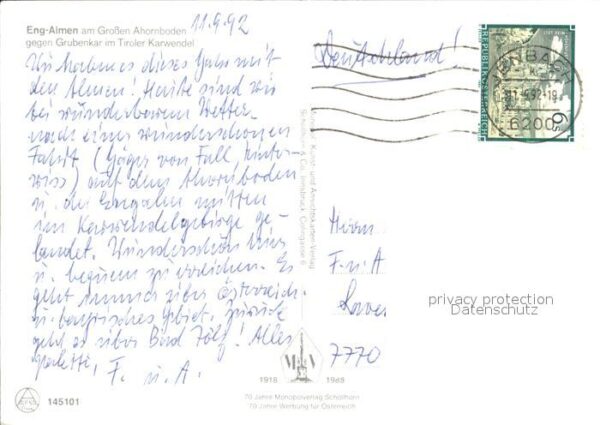 Eng-Almen am Großen Ahornboden
gegen Grubenkar im Tiroler Karwendel
11.9.92
Deutschland!
Wir haben es dieses Jahr mit
den Almen! Heute sind wir
bei wunderbarem Wetter
nach einer wunderschönen
Fahrt (Jäger von Fall, Hinter-
riss) auf dem Ahornboden
u. der Engalm mitten
im Karwendelgebirge ge-
landet. Wunderschön hier
u. bequem zu erreichen. Es
geht immer über Österreich.
u. bayrisches Gebiet. Zurück
geht es über Bad Tölz! Alles
paletti, F. u. A.
REPUBLIK ÖSTERREICH
JENBACH
11.9.92-18
6200
6 S
Herrn
F. u. A
7770
privacy protection
Datenschutz
Monopol-, Kunst- und Ansichtskarten-Verlag
Schöllhorn, Co., Innsbruck, Cologasse 6
MV
1918 1988
70 Jahre Monopolverlag Schöllhorn
70 Jahre Werbung für Österreich
145101